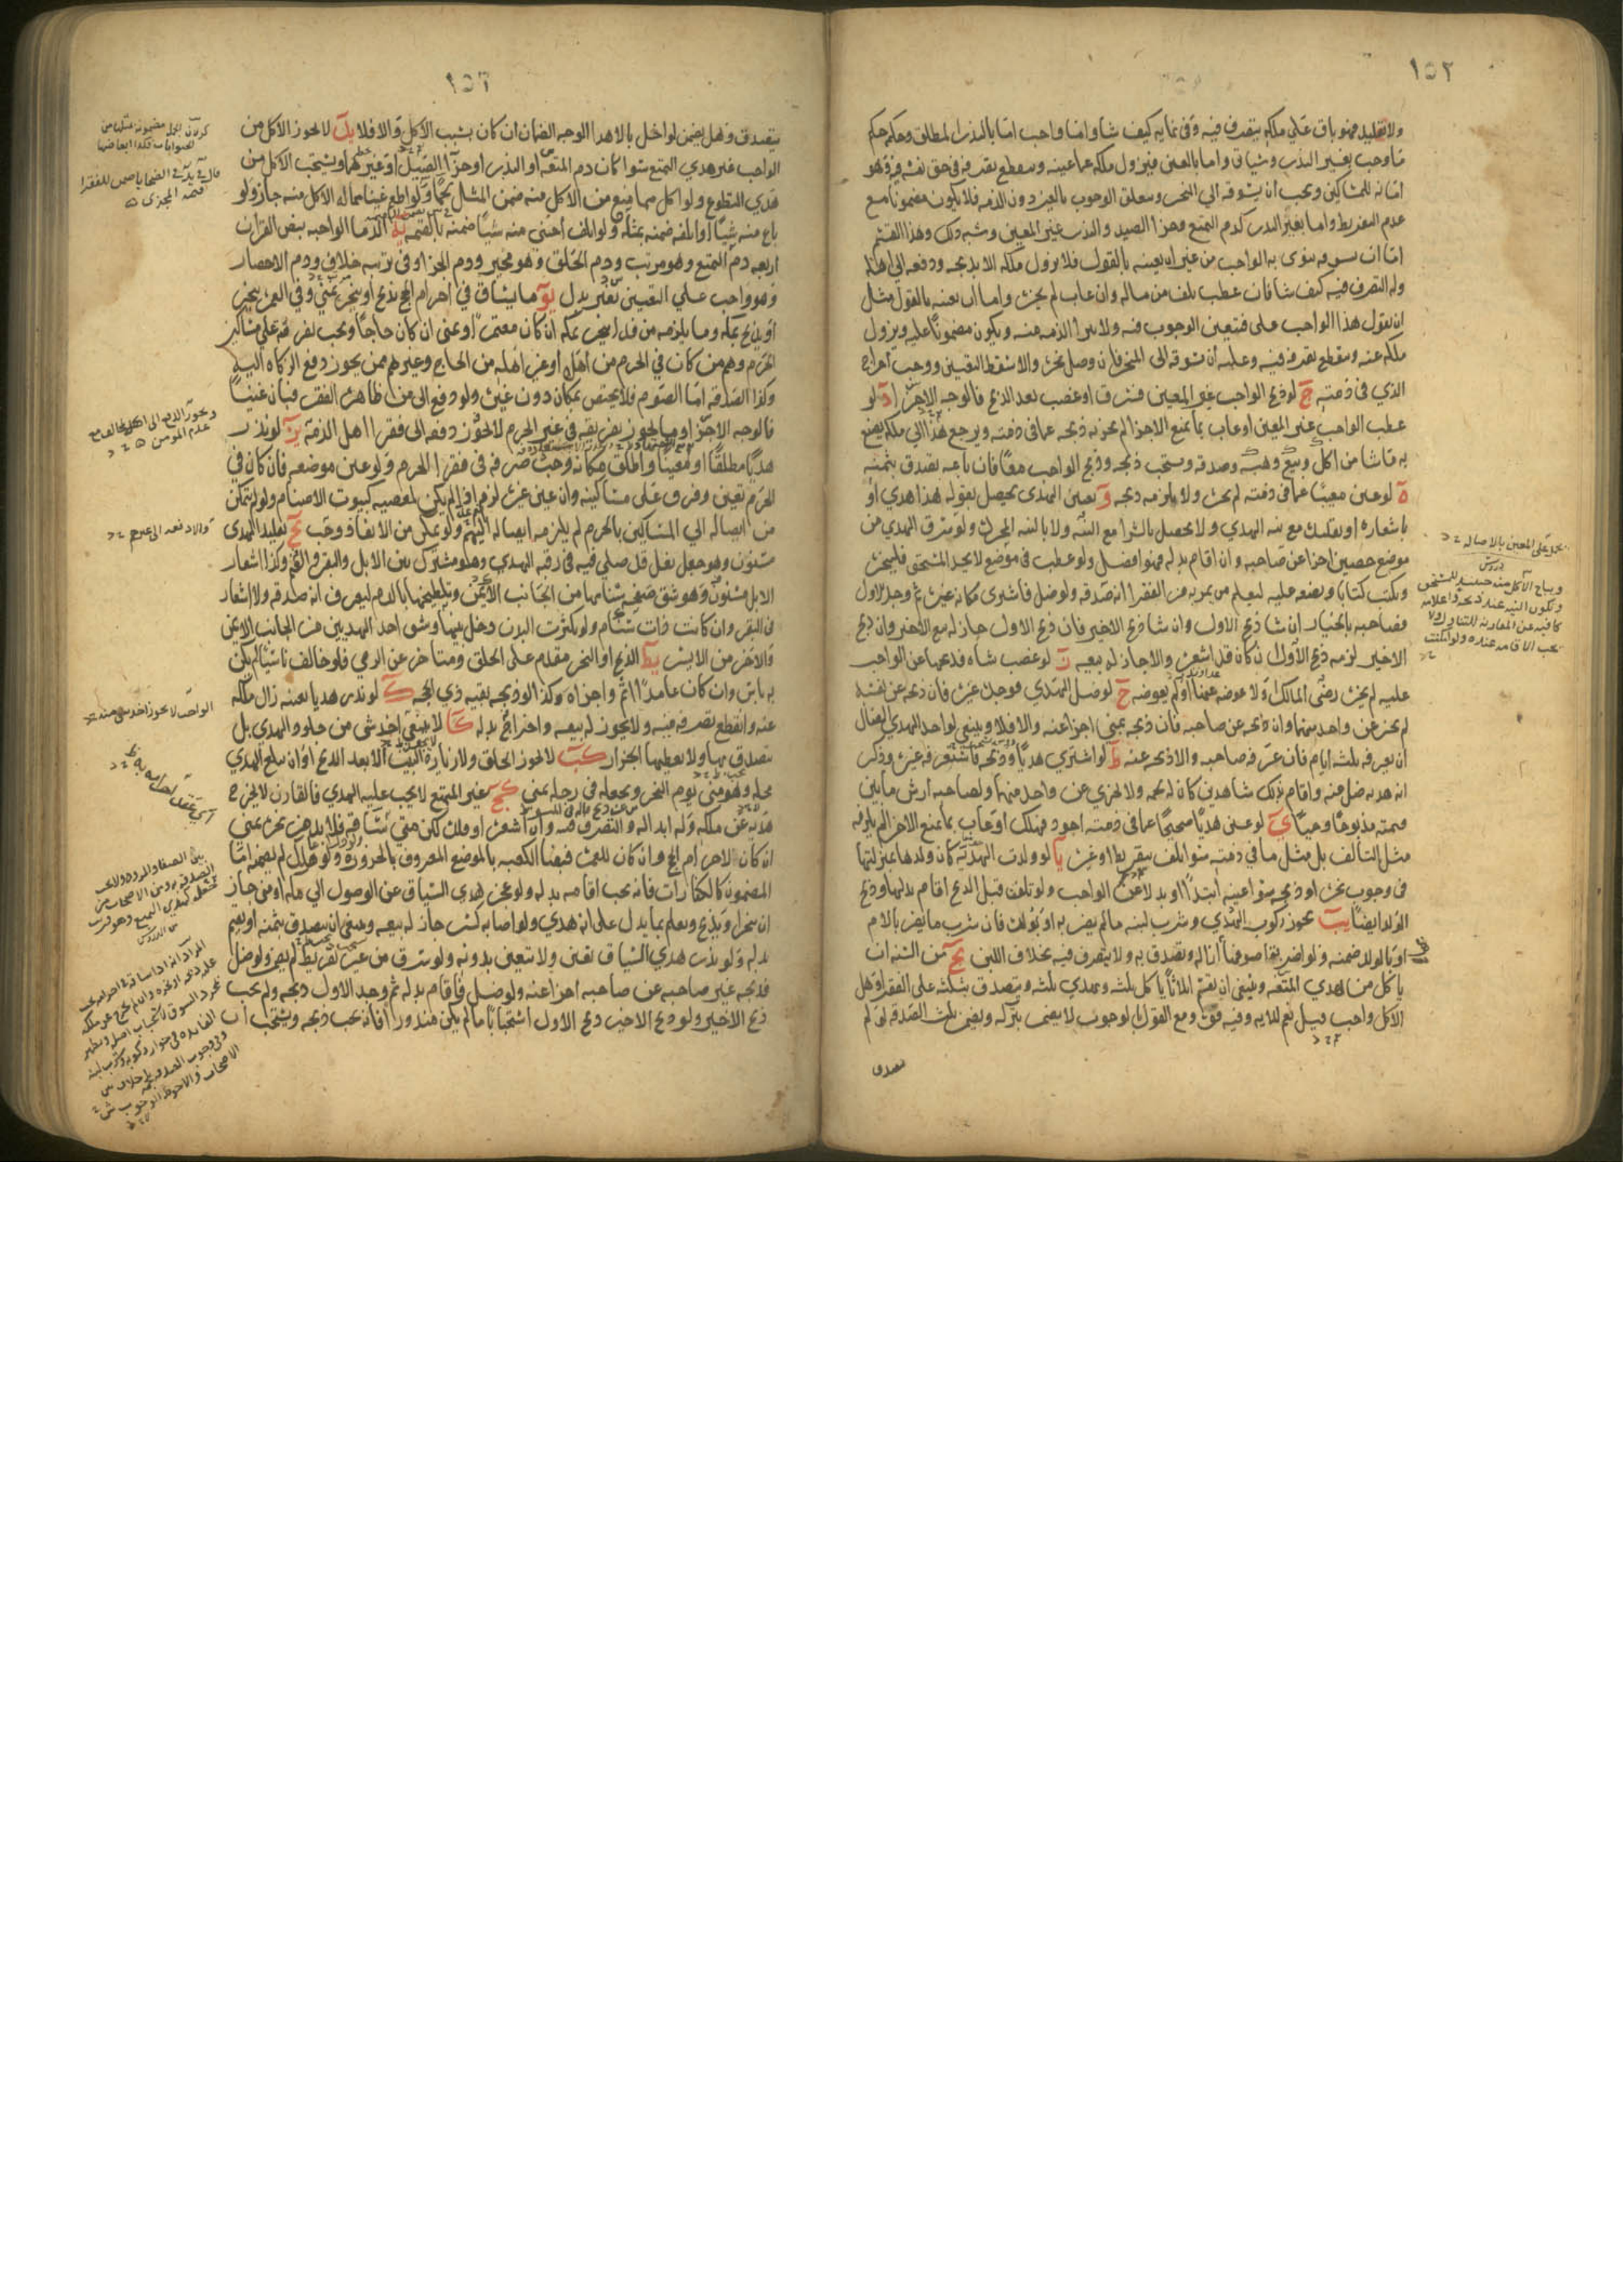 ١٥٢
ولا تقليد فهو باق على ملكه يتصرف فيه وفي نمايه كيف شا واما واجب اما بالنذر المطلق وحكمه حكم
ما وجب بغير النذر وسياتي واما بالعين فيزول ملكه عما عينه وينقطع تصرفه في حق نفسه فيه وهو
امانة للمساكين ويجب ان يسوقه الى المنحر ويتعلق الوجوب بالعين دون الذمة فلا يكون مضمونا مع
عدم التفريط واما بغير النذر كدم التمتع وجزا الصيد والنذر غير المعين وشبه ذلك وهذا القسم
اما ان يسوقه ينوى به الواجب من غير ان يعينه بالقول فلا يزول ملكه الا بذبحه ودفعه الى اهله
وله التصرف فيه كيف شا فان عطب تلف من ماله وان عاب لم يجز واما ان يعينه بالقول مثل
ان يقول هذا الواجب علي فيتعين الوجوب فيه ولا تبرأ الذمة منه ويكون مضمونا عليه ويزول
ملكه عنه وينقطع تصرفه فيه وعليه ان يسوقه الى المنحر فان وصل نحره والا سقط التعيين ووجب اخراج
الذي في ذمته ج لو ذبح الواجب غير المعين فسرق او غصب بعد الذبح فالوجه الاجزا د لو
عطب الواجب غير المعين او عاب بما يمنع الاجزا لم يجزه ذبحه عما في ذمته ويرجع هذا الى ملكه يصنع
به ما شا من اكل وبيع وهبة وصدقة ويستحب ذبحه وذبح الواجب معا فان باعه تصدق بثمنه
ه لو عين معيبا عما في ذمته لم يجز ولا يلزمه ذبحه و تعيين الهدى يحصل بقوله هذا هدي او
باشعاره او تقليده مع نية الهدي ولا يحصل بالشرا مع النية ولا بالنية المجردة ولو سرق الهدي من
موضع حصين اجزا عن صاحبه وان اقام بدله فهو افضل ولو عطب في موضع لا يجد المستحق فلينحره
ويكتب كتابا ويضعه عليه ليعلم من يمر به من الفقرا انه صدقة ولو ضل فاشترى مكانه غيره ثم وجد الاول
فصاحبه بالخيار ان شا ذبح الاول وان شا ذبح الاخير فان ذبح الاول جاز له بيع الاخير وان ذبح
الاخير لزمه ذبح الاول ان كان قد اشعره والا جاز له بيعه ز لو غصب شاه فذبحها عن الواجب
عليه لم يجز رضى المالك او لا عوضه عنها او لم يعوضه ح لو ضل الهدي فوجده غيره فان ذبحه عن نفسه
لم يجز عن واحد منهما وان ذبحه عن صاحبه فان ذبحه بمنى اجزا عنه والا فلا وينبغي لواجد الهدي الضال
ان يعرفه ثلثة ايام فان عرفه صاحبه والا ذبحه عنه ط لو اشترى هديا وذبحه فاستعرفه غيره وذكر
انه هديه ضل منه واقام بذلك شاهدين كان له لحمه ولا يجزي عن واحد منهما ولصاحبه ارش ما بين
قيمته مذبوحا وحيا ي لو عين هديا صحيحا عما في ذمته اجود فهلك او عاب بما يمنع الاجزا لم يلزمه
مثل التالف بل مثل ما في ذمته سوا تلف بتفريط او غيره يا لو ولدت الهدية كان ولدها بمنزلتها
في وجوب نحره او ذبحه سوا عينه ابتدا او بدلا عن الواجب ولو تلفت قبل الذبح اقام بدلها وذبح
الولد ايضا يب يجوز ركوب الهدي وشرب لبنه ما لم يضر به او بولده فان شرب ما يضر بالام
او بالولد ضمنه ولو اضر بقا صوفها ازاله وتصدق به ولا يتصرف فيه بخلاف اللبن يج من السنة ان
ياكل من هدي المتعة وينبغي ان يقسم اثلاثا ياكل ثلثه ويهدي ثلثه ويتصدق بثلثه على الفقرا وهل
الاكل واجب قيل نعم للاية وفيه قوة ومع القول بالوجوب لا يضمن بتركه ويضمن ثلث الصدقة لو لم
يتصدق
يدل على المعين بالاصالة
دروس
ويباح الاكل منه حينئذ للمستحق
وتكون النية عند ذبحه واعلامه
كافية عن المقارنة للتناول ولا
تجب الاقامة عنده ولو امكنت
١٥٣
يتصدق وهل يضمن لو اخل بالاهدا الوجه الضمان ان كان بسبب الاكل والا فلا يد لا يجوز الاكل من
الواجب غير هدي التمتع سوا كان دم المتعة او النذر او جزا الصيد او غيرهما ويستحب الاكل من
هدي التطوع ولو اكل مما منع من الاكل منه ضمن المثل لحما ولو اطعم غنيا مما له الاكل منه جاز ولو
باع منه شيا او اتلفه ضمنه بمثله ولو اتلف اجنبي منه شيا ضمنه بالقيمة يه الدما الواجبة بنص القران
اربعة دم التمتع وهو مرتب ودم الحلق وهو مخير ودم الجزا وفي ترتيبه خلاف ودم الاحصار
وهو واجب على التعيين بغير بدل يو ما يساق في احرام الحج يذبح او ينحر بمنى وفي العمرة ينحر
او يذبح بمكة وما يلزمه من فدا ينحر بمكة ان كان معتمرا وبمنى ان كان حاجا ويجب تفرقته على مساكين
الحرم وهم من كان في الحرم من اهله او غير اهله من الحاج وغيرهم ممن يجوز دفع الزكاة اليه
وكذا الصدقة اما الصوم فلا يختص بمكان دون غيره ولو دفع الى من ظاهره الفقر فبان غنيا
فالوجه الاجزا وما يجوز تفريقه في غير الحرم لا يجوز دفعه الى فقرا اهل الذمة يز لو نذر
هديا مطلقا او معينا واطلق مكانه وجب صرفه في فقرا الحرم ولو عين موضعه فان كان في
الحرم تعين وفرق على مساكينه وان عين غيره لزم اذا لم يكن لمعصية كبيوت الاصنام ولو لم يتمكن
من ايصاله الى المساكين بالحرم لم يلزمه ايصاله اليهم ولو تمكن من الانفاذ وجب يح تقليد الهدى
مسنون وهو جعل نعل قد صلى فيه في رقبة الهدي وهو مشترك بين الابل والبقر والغنم وكذا اشعار
الابل مسنون وهو شق صفحة سنامها من الجانب الايمن وتلطيخها بالدم ليعرف انه صدقة ولا اشعار
في البقر وان كانت ذات سنام ولو كثرت البدن دخل بينها وشق احد الهديين من الجانب الايمن
والاخر من الايسر يط الذبح او النحر مقدم على الحلق ومتاخر عن الرمي فلو خالف ناسيا لم يكن
به باس وان كان عامدا اثم واجزاه وكذا لو ذبحه بقية ذي الحجة ك لو نذر هديا بعينه زال ملكه
عنه وانقطع تصرفه فيه ولا يجوز له بيعه واخراج بدله كا لا ينبغي اخذ شى من جلود الهدي بل
يتصدق بها ولا يعطيها الجزار كب لا يجوز الحلق ولا زيارة البيت الا بعد الذبح او ان يبلغ الهدي
محله وهو منى يوم النحر ويجعله في رحله بمنى كج غير المتمتع لا يجب عليه الهدي فالقارن لا يخرج
هديه عن ملكه وله ابداله والتصرف فيه وان اشعره او قلده لكن متى ساقه فلا بد من نحره بمنى
ان كان لاحرام الحج وان كان للعمرة فبفنا الكعبة بالموضع المعروف بالحزورة ولو هلك لم يضمنه اما
المضمون كالكفارات فانه يجب اقامة بدله ولو عجز هدي السياق عن الوصول الى مكة او منى جاز
ان ينحر او يذبح ويعلم بما يدل على انه هدي ولو اصابه كسر جاز له بيعه وينبغي ان يتصدق بثمنه او يقيم
بدله ولو نذر هدي السياق تعين ولا يتعين بدونه ولو سرق من غير تفريط لم يضمن ولو ضل
فذبحه غير صاحبه عن صاحبه اجزا عنه ولو ضل فاقام بدله ثم وجد الاول ذبحه ولم يجب
ذبح الاخير ولو ذبح الاخير ذبح الاول استحبابا ما لم يكن منذورا فانه يجب ذبحه ويستحب ان
ويجوز الدفع الى اهل الخلاف مع
عدم المومن
والا دفعه الى غيرهم
الواجب لا يجوز اخذ شى منه